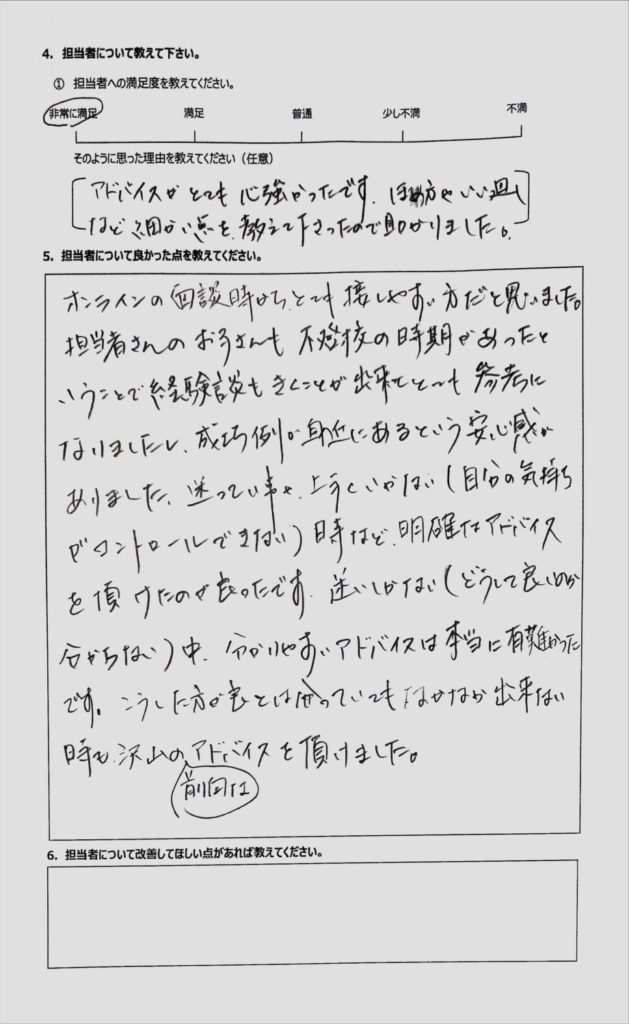 4. 担当者について教えて下さい。
① 担当者への満足度を教えてください。
非常に満足 満足 普通 少し不満 不満
そのように思った理由を教えてください（任意）
アドバイスがとても心強かったです。ほめ方やいい過し
など細かい点を教えて下さったので助かりました。
5. 担当者について良かった点を教えてください。
オンラインの面談時から、とても接しやすい方だと思いました。
担当者さんのお子さんも不登校の時期があったと
いうことで経験談もきくことが出来てとても参考に
なりましたし、成功例が身近にあるという安心感が
ありました。迷っている事や、上手くいかない（自分の気持ち
がコントロールできない）時など、明確なアドバイス
を頂けたのが良かったです。迷いしかない（どうして良いのか
分からない）中、分かりやすいアドバイスは本当に有難かった
です。こうした方が良いとは分っていてもなかなか出来ない
時も、沢山のアドバイスを頂けました。
前向な
6. 担当者について改善してほしい点があれば教えてください。